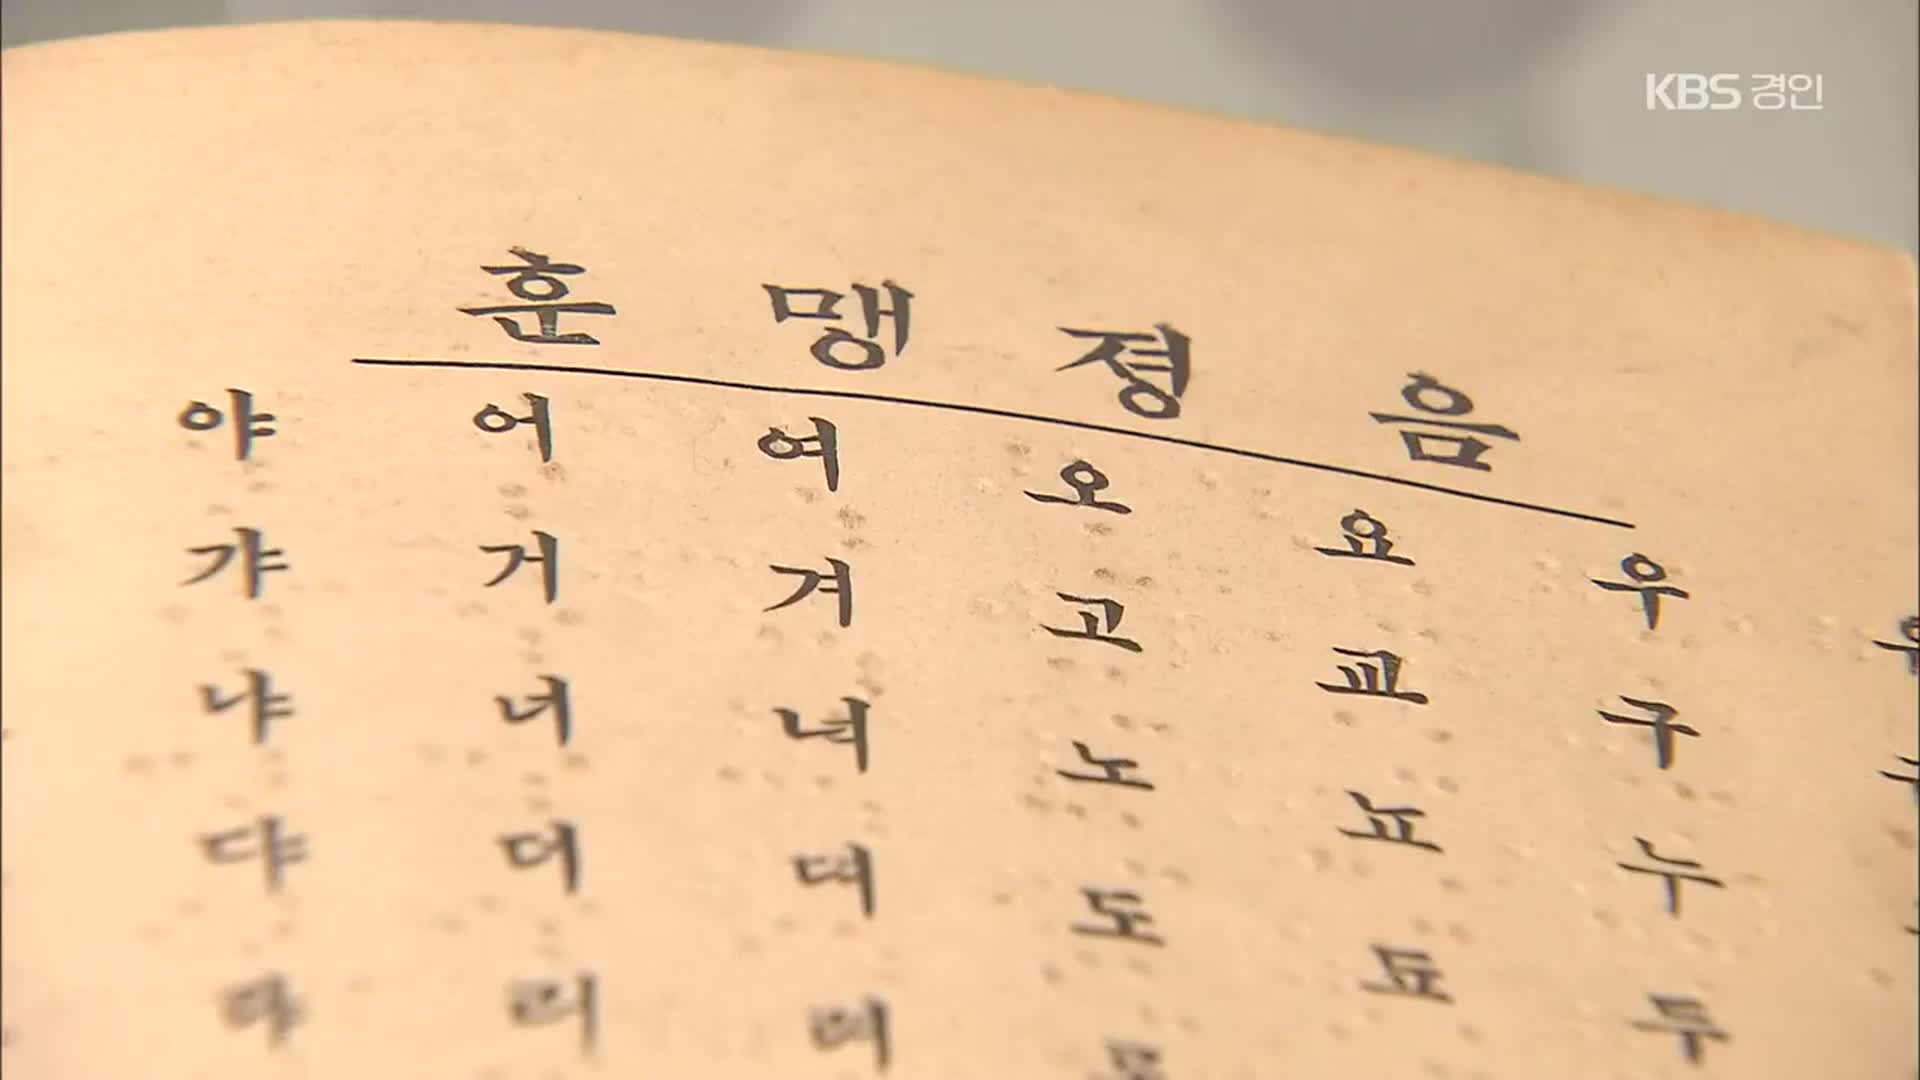 KBS 경인
훈 맹 졍 음
야 어 여 오 요 우
갸 거 겨 고 교 구
냐 너 녀 노 뇨 누
댜 더 뎌 도 됴 두